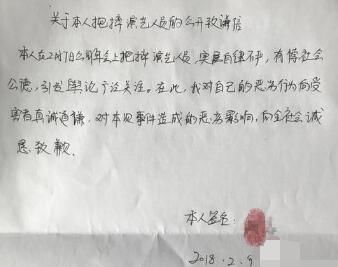 关于本人把摔演艺人员的公开致谦信
本人在2月7日公司年会上把摔演艺人员,实属自律不严,有悖社会
公德,引起舆论广泛关注。在此,我对自己的恶劣行为向受
害者真诚道歉,对本次事件造成的恶劣影响,向全社会诚
恳致歉。
本人签名:
2018.2.9